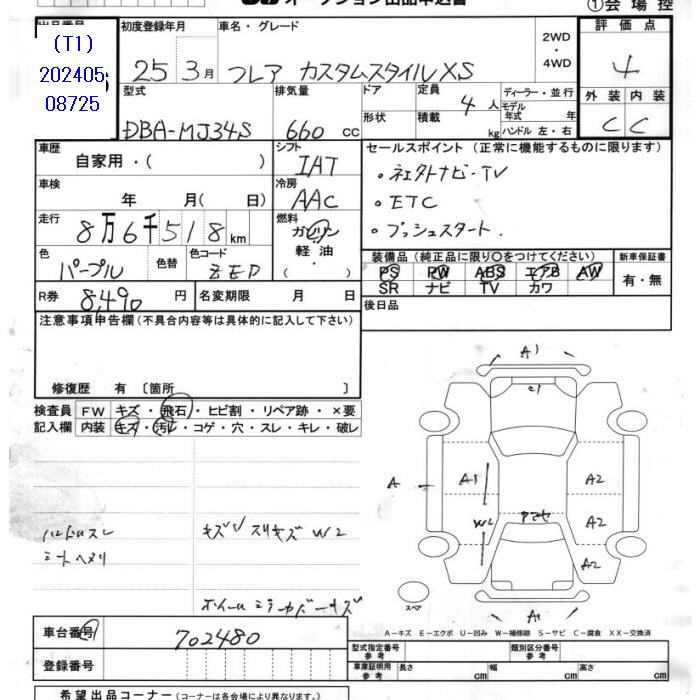 オークション出品申込書
①会場控
(T1)
202405
08725
初度登録年月
25 3月
車名・グレード
フレア カスタムスタイル XS
2WD
・
4WD
評価点
4
外装 内装
C C
型式
DBA-MJ34S
排気量
660 cc
ドア
形状
定員 4人
積載 kg
ディーラー・並行
モデル
年式 年
ハンドル 左・右
車歴
自家用・( )
シフト
IAT
セールスポイント (正常に機能するものに限ります)
・社外ナビ・TV
・ETC
・プッシュスタート.
車検
年 月( 日)
冷房
AAC
走行
8万6千518 km
燃料
ガソリン
軽油
・( )
色
パープル
色替
色コード
ZEP
装備品 (純正品に限り〇をつけてください)
PS PW ABS エアB AW
SR ナビ TV カワ
新車保証書
有・無
R券
8,490 円
名変期限 月 日
後日品
注意事項申告欄 (不具合内容等は具体的に記入して下さい)
修復歴 有 〔箇所 〕
検査員
記入欄
FW キズ・飛石・ヒビ割・リペア跡・×要
内装 キズ・汚れ・コゲ・穴・スレ・キレ・破レ
ハンドルスレ
シートヘタリ
キズ スリキズ W2
A1
A
A1
W2
A2
A2
A2
A1
スペア
A-キズ E-エクボ U-凹み W-補修跡 S-サビ C-腐食 XX-交換済
車台番号
702480
登録番号
型式指定番号
参考
類別区分番号
参考
車庫証明用
参考
長さ cm
幅 cm
高さ cm
希望出品コーナー (コーナーは各会場により異なります。)